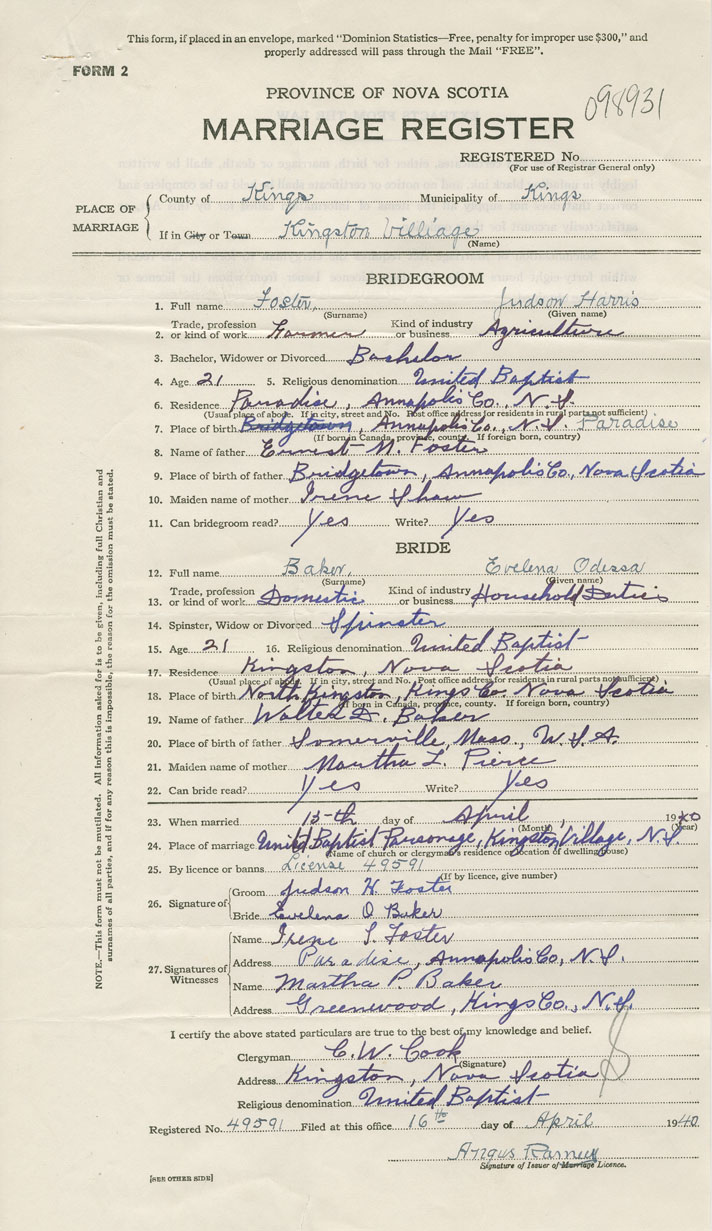 This form, if placed in an envelope, marked "Dominion Statistics—Free, penalty for improper use $300," and
properly addressed will pass through the Mail "FREE".
FORM 2
PROVINCE OF NOVA SCOTIA
098931
MARRIAGE REGISTER
REGISTERED No.
(For use of Registrar General only)
PLACE OF MARRIAGE
County of Kings Municipality of Kings
If in City or Town Kingston Villiage
(Name)
BRIDEGROOM
1. Full name Foster, Judson Harris
(Surname) (Given name)
2. Trade, profession or kind of work Farmer Kind of industry or business Agriculture
3. Bachelor, Widower or Divorced Bachelor
4. Age 21 5. Religious denomination United Baptist
6. Residence Paradise, Annapolis Co. N. S.
(Usual place of abode. If in city, street and No. Post office address for residents in rural parts not sufficient)
7. Place of birth Bridgetown, Annapolis Co., N. S. Paradise
(If born in Canada, province, county. If foreign born, country)
8. Name of father Ernest M. Foster
9. Place of birth of father Bridgetown, Annapolis Co., Nova Scotia
10. Maiden name of mother Irene Shaw
11. Can bridegroom read? Yes Write? Yes
BRIDE
12. Full name Baker, Evelena Odessa
(Surname) (Given name)
13. Trade, profession or kind of work Domestic Kind of industry or business Household Duties
14. Spinster, Widow or Divorced Spinster
15. Age 21 16. Religious denomination United Baptist
17. Residence Kingston, Nova Scotia
(Usual place of abode. If in city, street and No. Post office address for residents in rural parts not sufficient)
18. Place of birth North Kingston, Kings Co. Nova Scotia
(If born in Canada, province, county. If foreign born, country)
19. Name of father Walter D. Baker
20. Place of birth of father Somerville, Mass., U. S. A.
21. Maiden name of mother Martha L. Pierce
22. Can bride read? Yes Write? Yes
23. When married 15-th day of April, 1940
(Month) (Year)
24. Place of marriage United Baptist Parsonage, Kingston Village, N. S.
(Name of church or clergyman's residence or location of dwelling house)
25. By licence or banns License 49591
(If by licence, give number)
26. Signature of
Groom Judson H. Foster
Bride Evelena O Baker
27. Signatures of Witnesses
Name Irene S. Foster
Address Paradise, Annapolis Co, N. S.
Name Martha P. Baker
Address Greenwood, Kings Co., N. S.
I certify the above stated particulars are true to the best of my knowledge and belief.
Clergyman C. W. Cook
(Signature)
Address Kingston, Nova Scotia
Religious denomination United Baptist
Registered No. 49591 Filed at this office 16th day of April 1940
Angus Ramey
Signature of Issuer of Marriage Licence.
[SEE OTHER SIDE]
NOTE.—This form must not be mutilated. All information asked for is to be given, including full Christian and
surnames of all parties, and if for any reason this is impossible, the reason for the omission must be stated.